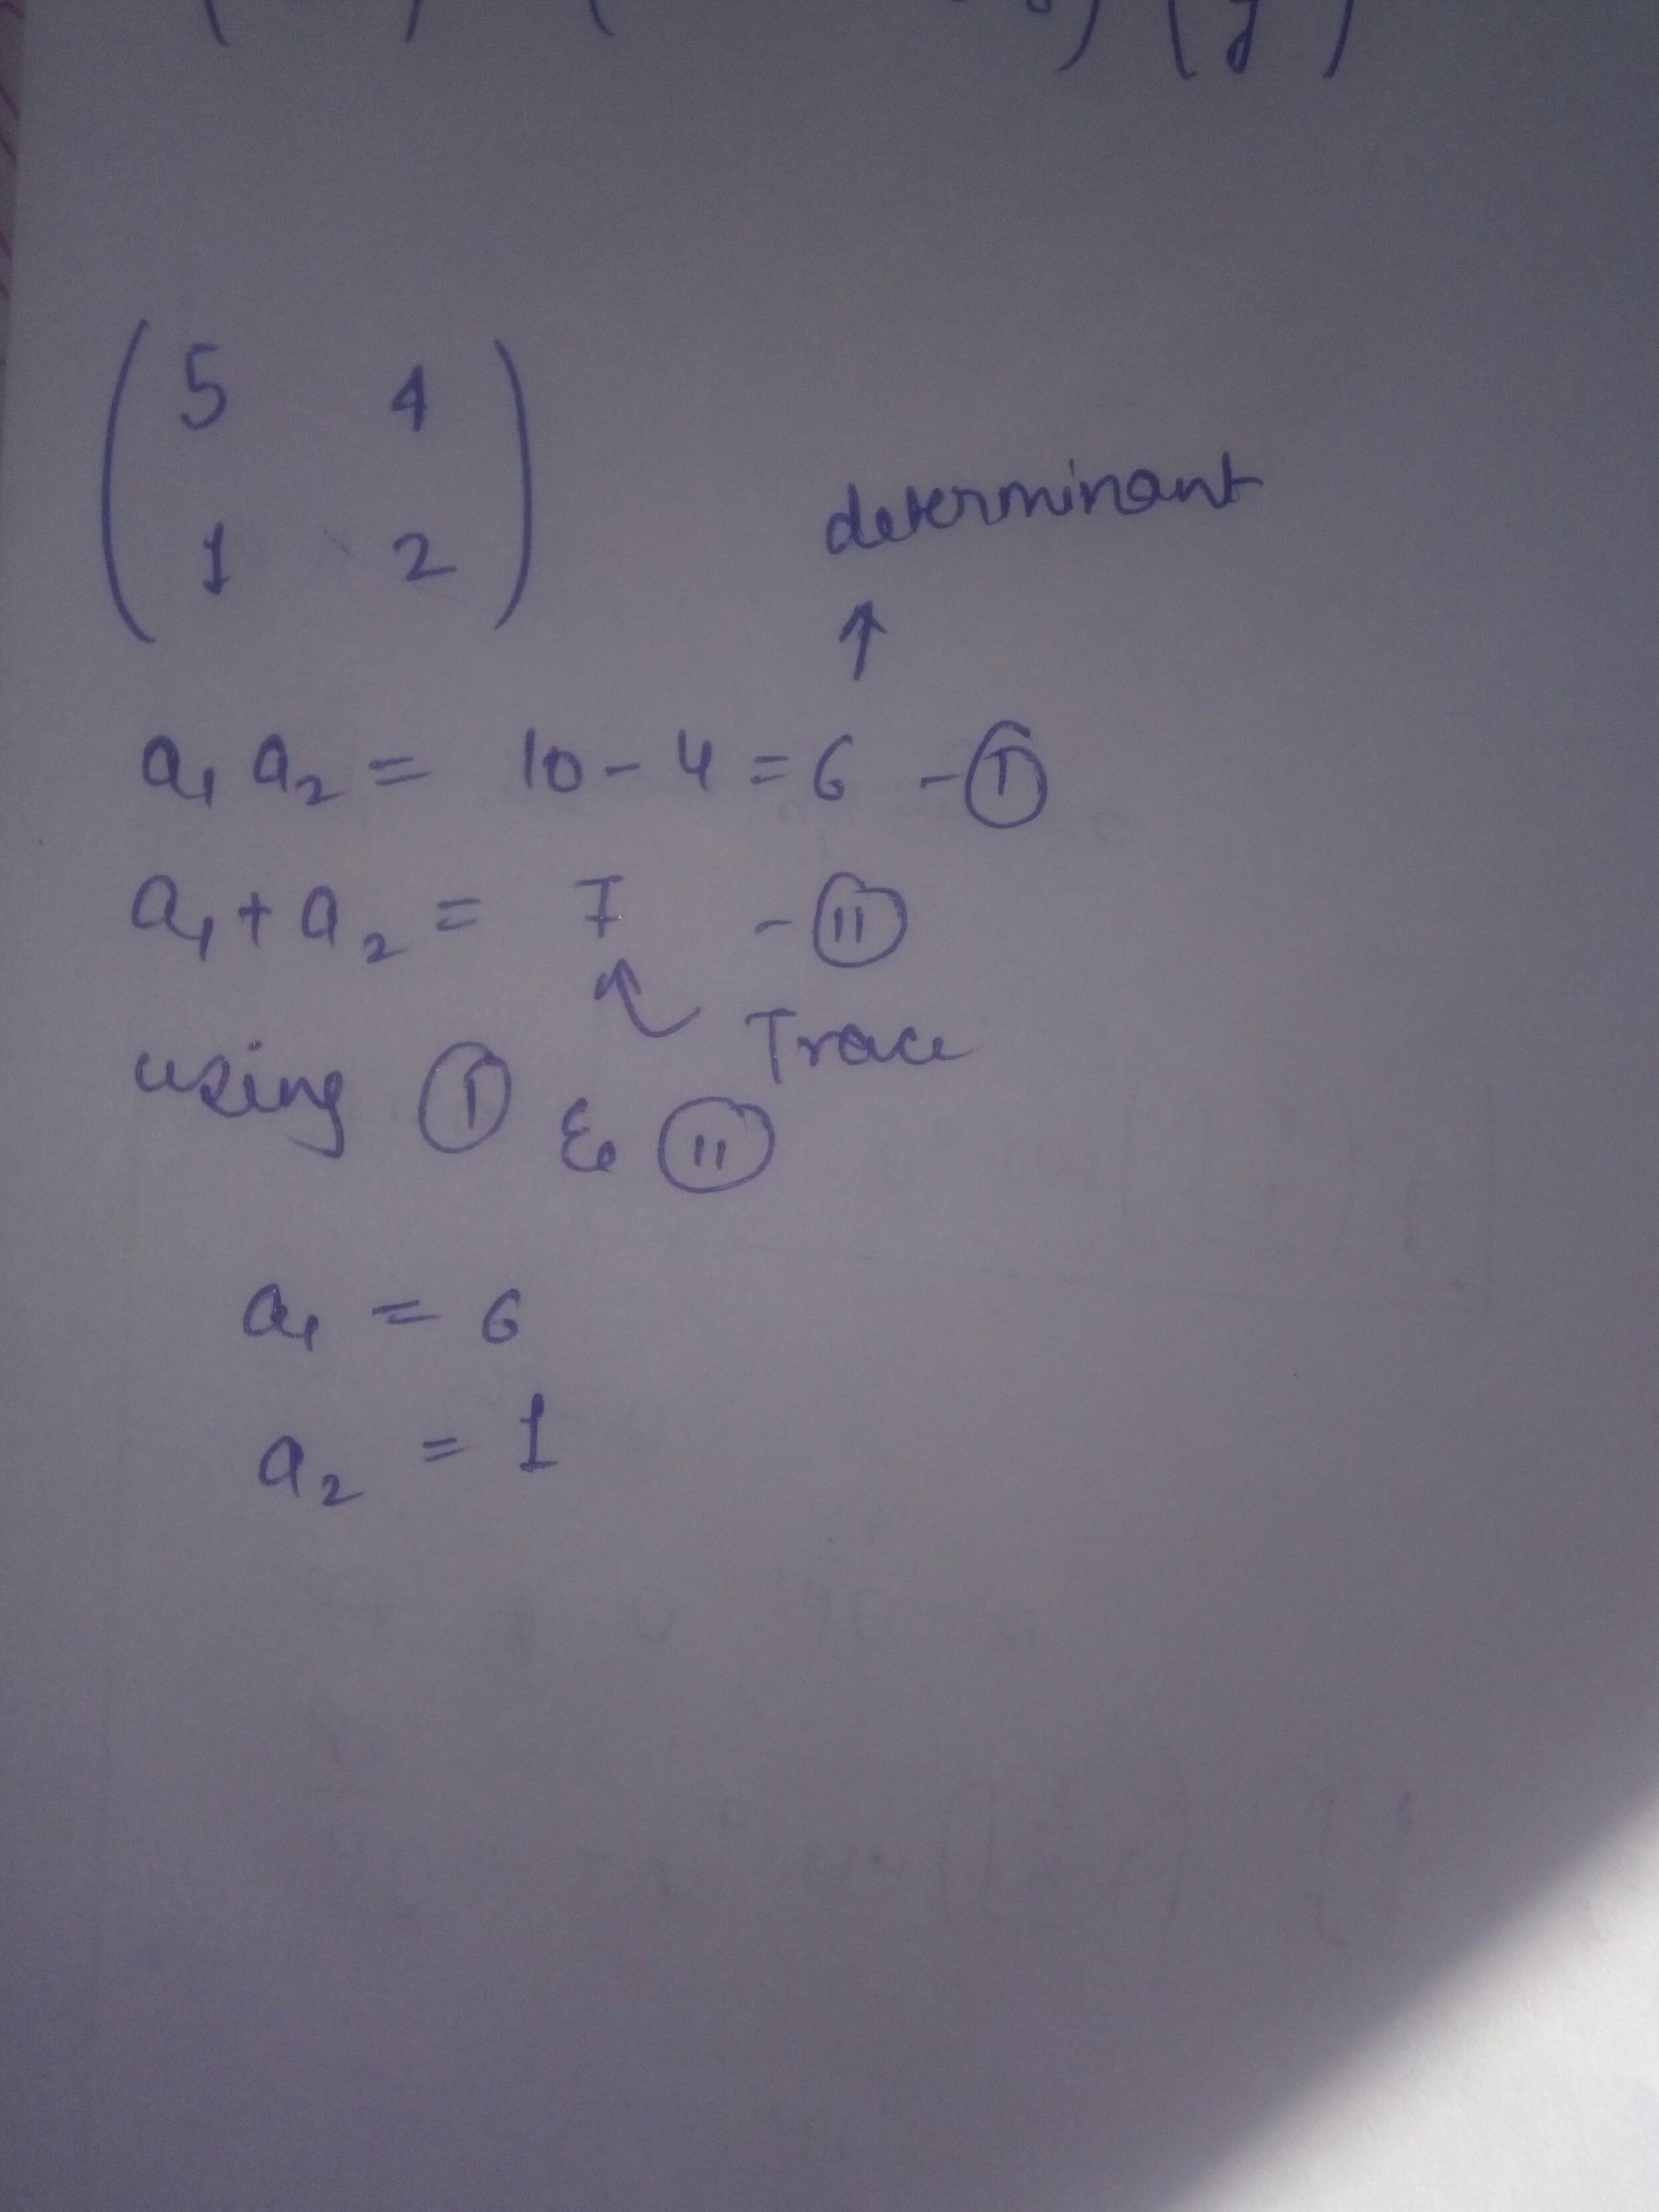 y
5 4
1 2
determinant
↑
a₁ a₂ = 10 - 4 = 6 - Ⓘ
a₁ + a₂ = 7 - Ⓘⓘ
Trace
using Ⓘ & Ⓘⓘ
a₁ = 6
a₂ = 1